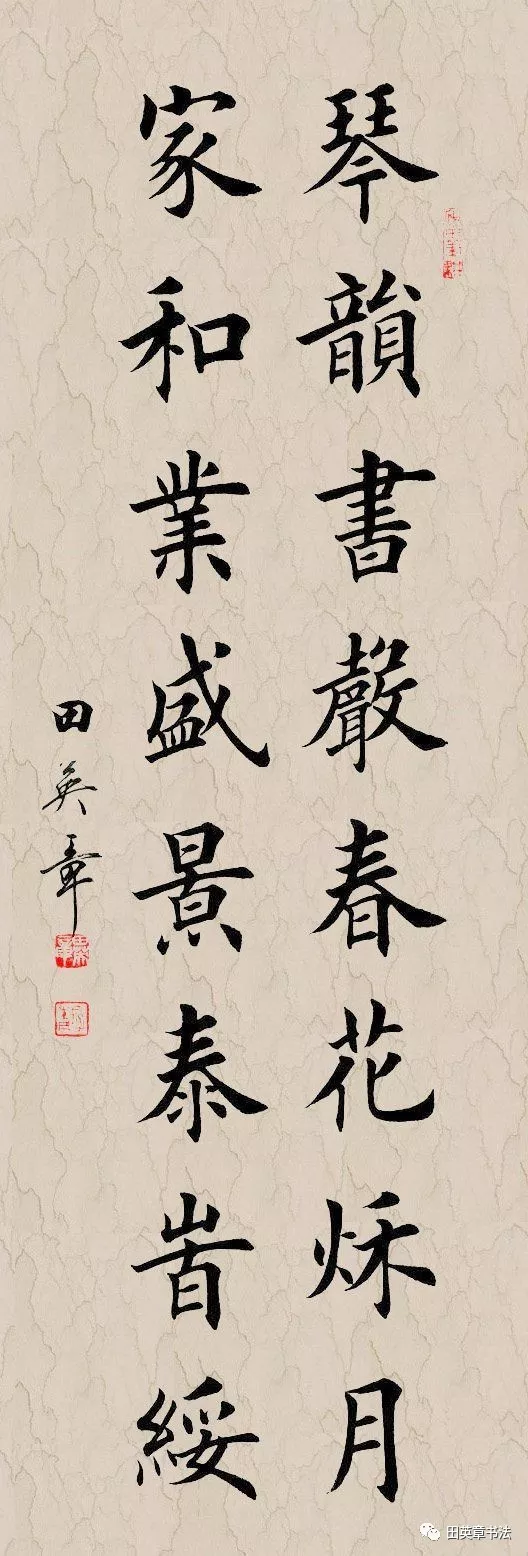 琴韻書聲春花秌月
家和業盛景泰旹綏
田英章
田英章书法